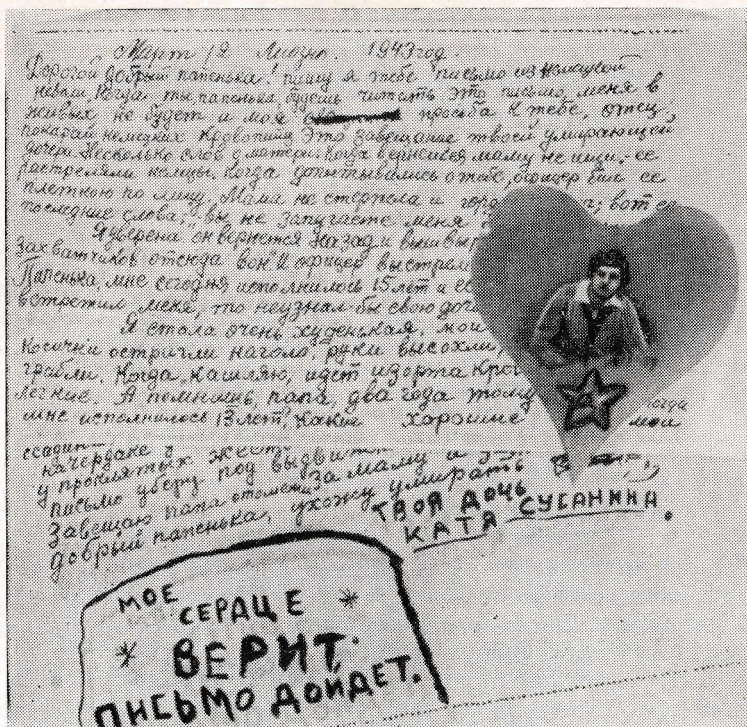 Март 12 Лиозно. 1943 год.
Дорогой добрый папенька! пишу я тебе письмо из немецкой
неволи. Когда ты, папенька, будешь читать это письмо, меня в
живых не будет и моя просьба к тебе, отец,
покарай немецких кровопийц Это завещание твоей умирающей
дочери. Несколько слов о матери. Когда вернешься маму не ищи. - ее
растреляли немцы. Когда допытывались о тебе, офицер бил ее
плеткою по лицу. Мама не стерпела и гордо вот ее
последние слова: "вы не запугаете меня
Я уверена он вернется назад и вышвыр
захватчиков отсюда вон" И офицер выстрел
Папенька, мне сегодня исполнилось 15 лет и ес
встретил меня, то неузнал бы свою доч
Я стала очень худенькая, мои
косички остригли наголо, руки высохли,
грабли. Когда кашляю, идет изорта кро
легкие. А помнишь, папа, два года тому когда
мне исполнилось 13 лет, какие хорошие мои
на чердаке
у проклятых жест
письмо уберу под выдвит
Завещаю папа отомсти за маму и
добрый папенька, ухожу умирать
ТВОЯ ДОЧЬ
КАТЯ СУСАНИНА.
МОЕ
СЕРДЦЕ
ВЕРИТ.
ПИСЬМО ДОЙДЕТ.